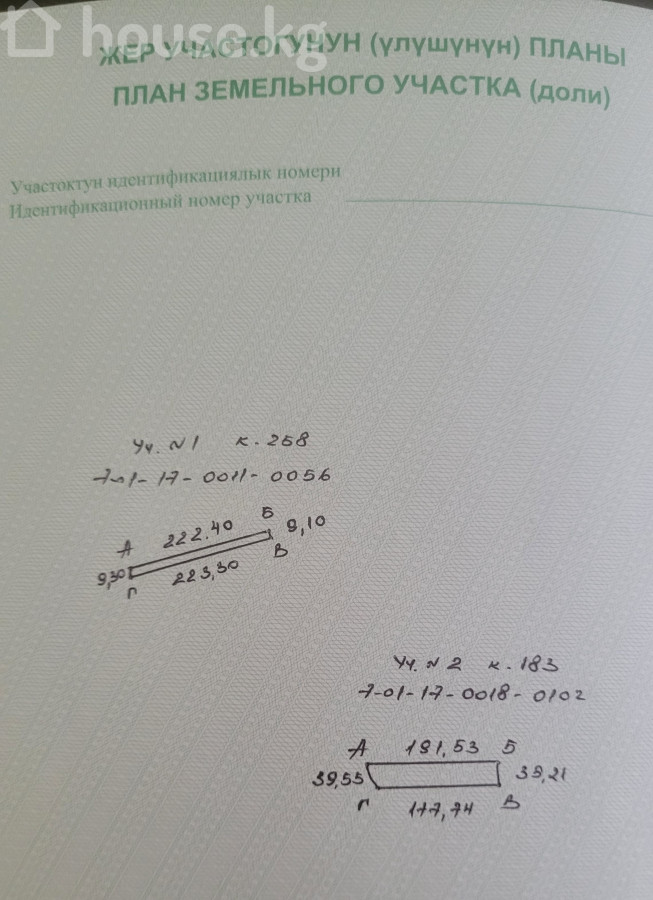 house.kg
ЖЕР УЧАСТОГУНУН (үлүшүнүн) ПЛАНЫ
ПЛАН ЗЕМЕЛЬНОГО УЧАСТКА (доли)
Участоктун идентификациялык номери
Идентификационный номер участка
Уч. N1 к. 258
7-01-17-0011-0056
А 222.40 Б 9,10
9,30 Г 223,30 В
Уч. N 2 к. 183
7-01-17-0018-0102
А 191,53 Б
39,55 39,21
Г 177,74 В